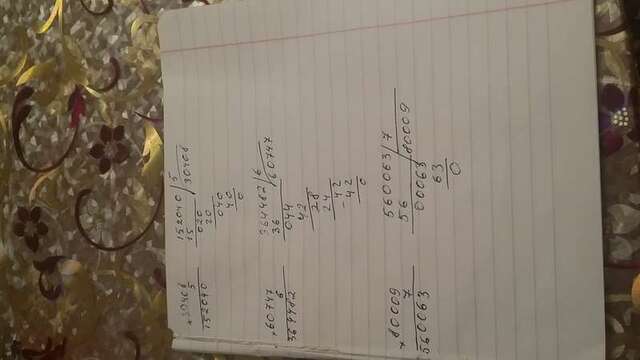 ×30408
5
152040
152040 | 5
15 30408
020
20
040
40
0
×60747
6
364482
364482 | 6
36 60747
044
42
28
24
42
-42
0
×80009
7
560063
560063 | 7
56 80009
00063
63
0